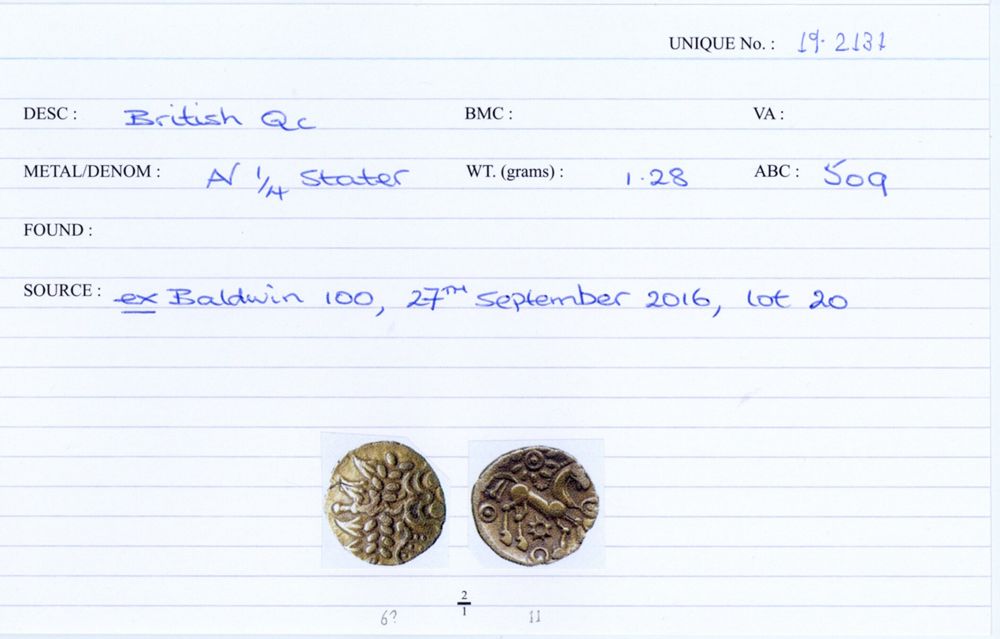 UNIQUE No. : 19. 2131
DESC : British Qc BMC : VA :
METAL/DENOM : AV 1/4 Stater WT. (grams) : 1.28 ABC : 509
FOUND :
SOURCE : ex Baldwin 100, 27TH September 2016, lot 20
2/1
6? 11